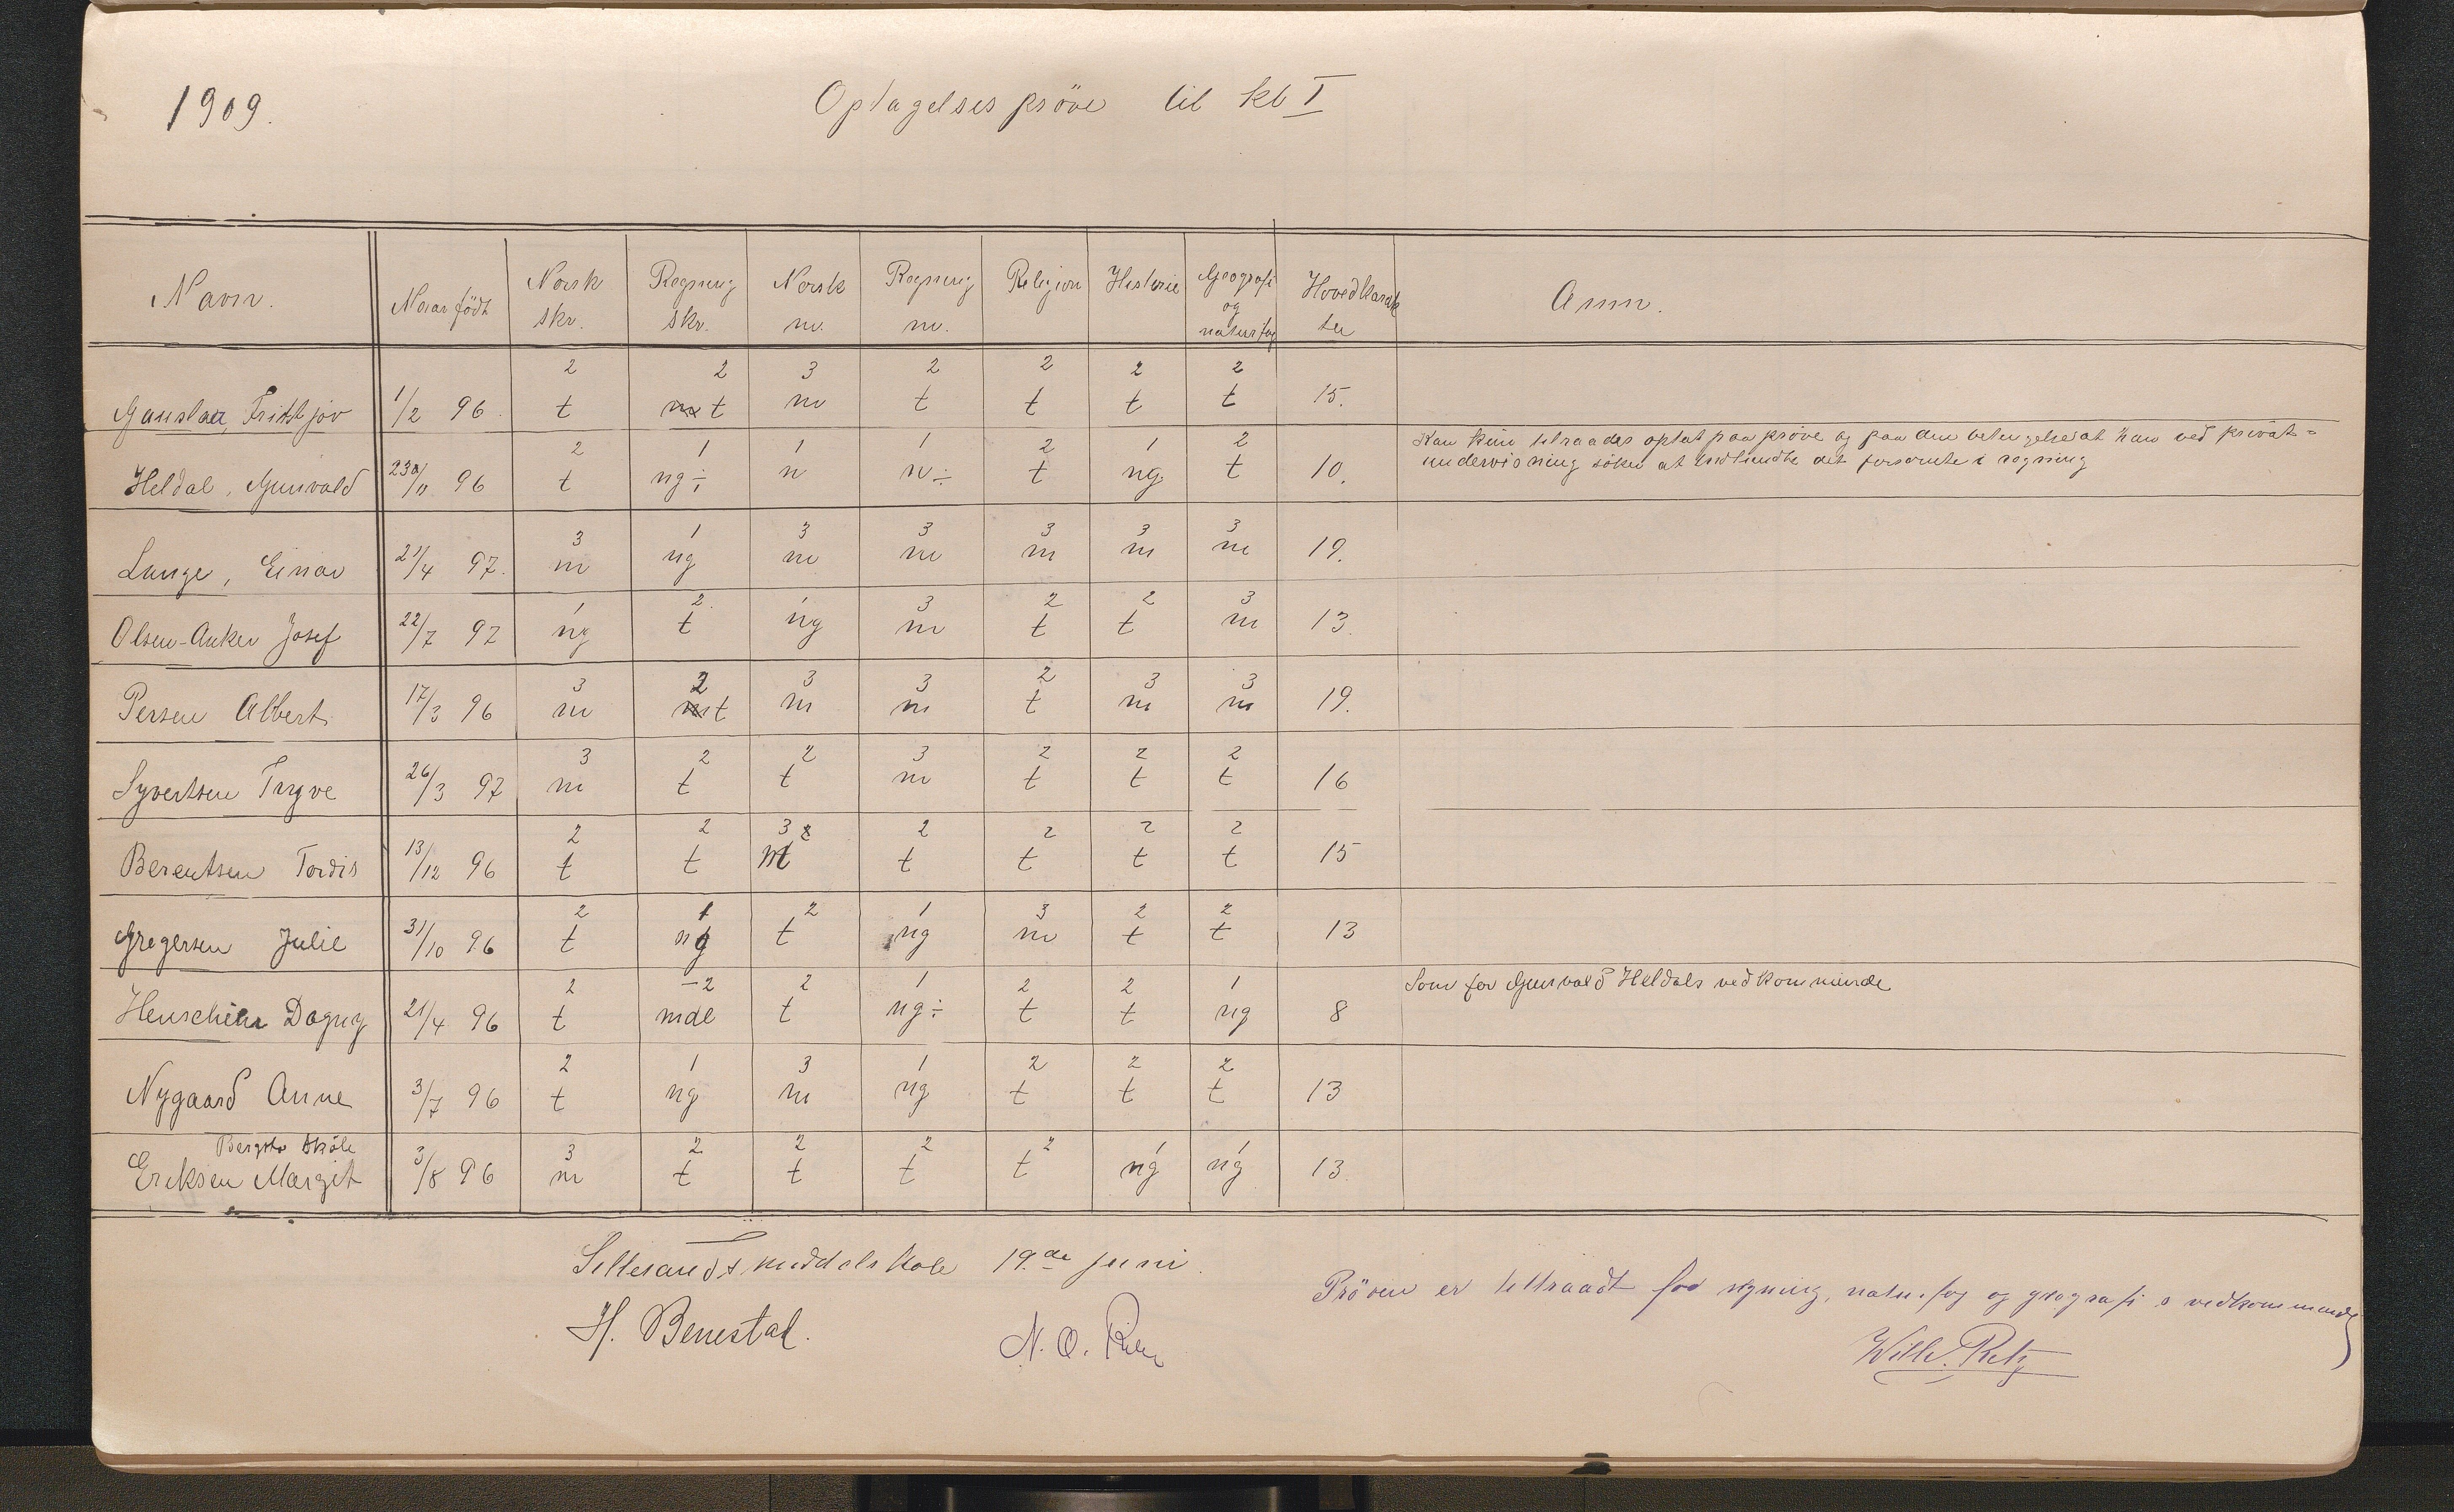 1909. Optagelsespröve til kl I
Navn. Naar födt Norsk skr. Regning skr. Norsk m. Regning m. Religion Historie Geografi og naturfag Hovedkarakter Anm.
2 2 3 2 2 2 2
Fridtjov 1/2 96. t t m t t t t 15.
2 1 1 1 2 1 2 Kan kun tilraades optat paa prøve og paa den betingelse at han ved privat-
Heldal, Gunvald 96 t ng÷ n n÷ t ng. t 10. undervisning söker at indhente det forsømte i regning
3 1 3 3 3 3 3
Lunge, Einar 21/4 97. m ng m m m m m 19.
1 2. 1 3 2 2 3
Olsen-Anker Josef 22/7 97 ng t ng m t t m 13.
3 2 3 3 2 3 3
Persen Albert 17/3 96 m t m m t m m 19.
3 2 2 3 2 2 2
Syvertsen Trygve 26/3 97 m t t m t t t 16
2 2 3 2 2 2 2
Berentsen Tordis 13/12 96 t t m t t t t 15
2 1 2 1 3 2 2
Gregersen Julie 31/10 96 t ng t ng m t t 13
2 -2 2 1 2 2 1 Som for Gunvald Heldals vedkommende
Henschien Dagny 21/4 96 t mdl t ng÷ t t ng 8
2 1 3 1 2 2 2
Nygaard Anne 3/7 96 t ng m ng t t t 13
Bergsto skole 3 2 2 2 2 1 1
Eriksen Margit 3/8 96 m t t t t ng ng 13.
Lillesands middelskole 19.de juni.
Pröven er tiltraadt for regning, naturfag og geografi s vedkommende
H. Benestad. N. O.
Willi.